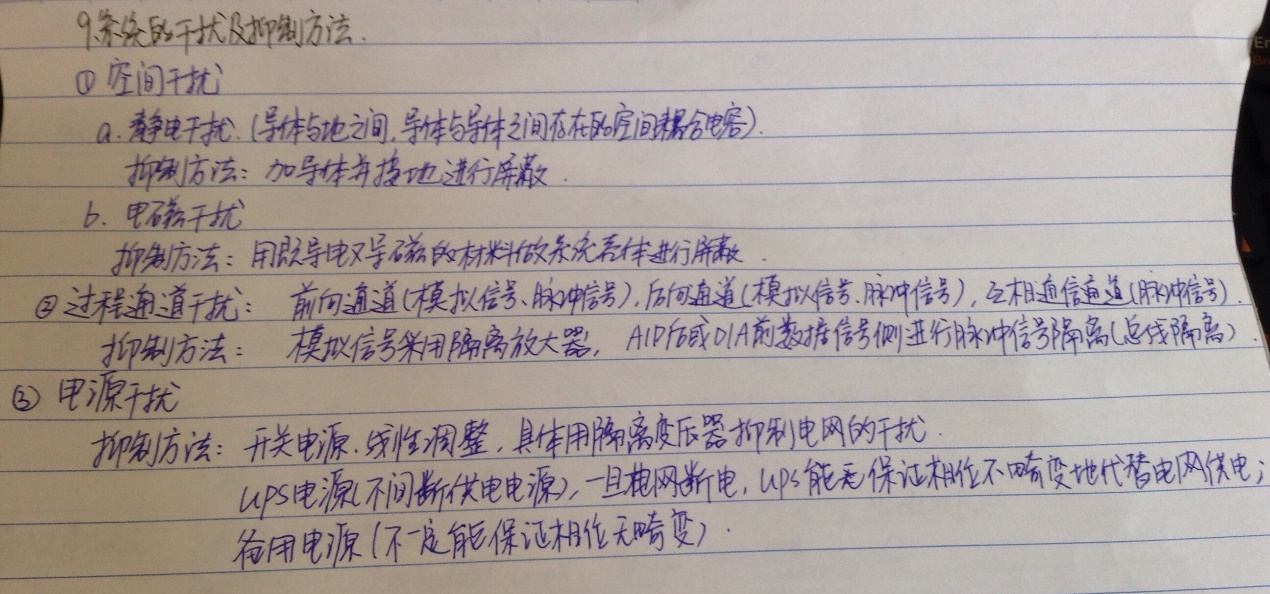 9.系统的干扰及抑制方法.
① 空间干扰
a. 静电干扰.(导体与地之间,导体与导体之间存在的空间耦合电容).
抑制方法: 加导体并接地进行屏蔽.
b. 电磁干扰
抑制方法: 用既导电又导磁的材料做系统壳体进行屏蔽.
② 过程通道干扰: 前向通道(模拟信号、脉冲信号),后向通道(模拟信号.脉冲信号),互相通信通道(脉冲信号).
抑制方法: 模拟信号采用隔离放大器, A/D后或D/A前数据信号侧进行脉冲信号隔离(总线隔离).
③ 电源干扰
抑制方法: 开关电源.线性调整,具体用隔离变压器抑制电网的干扰.
UPS电源(不间断供电电源),一旦电网断电,UPS能保证相位不畸变地代替电网供电;
备用电源(不一定能保证相位无畸变).